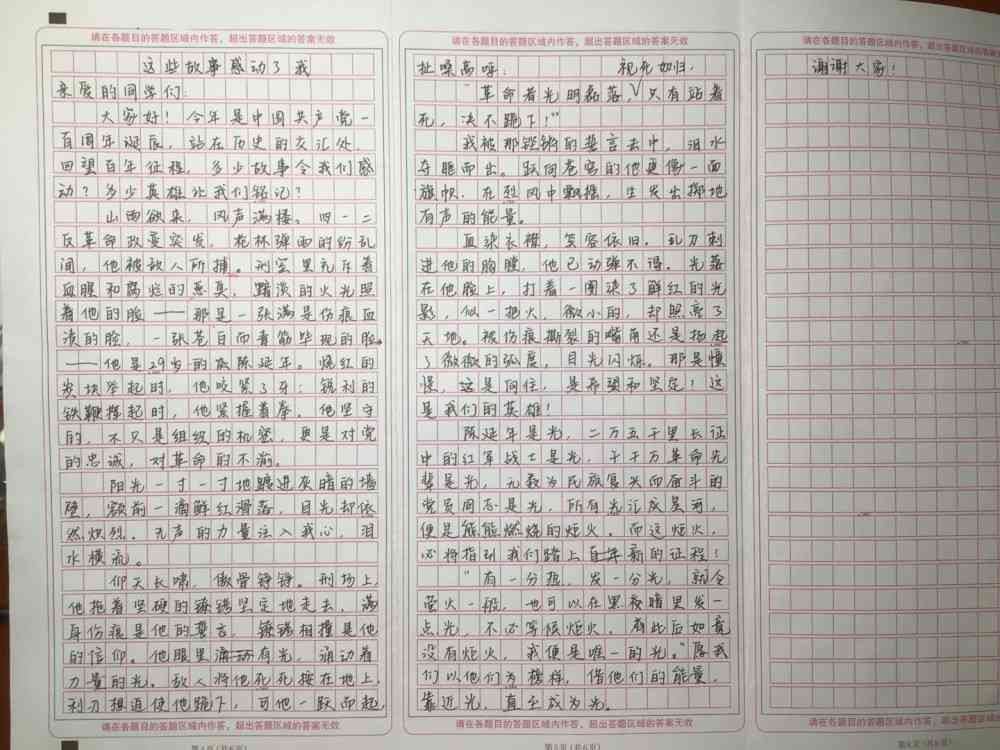 请在各题目的答题区域内作答，超出答题区域的答案无效
这些故事感动了我
亲爱的同学们：
大家好！今年是中国共产党一
百周年诞辰，站在历史的交汇处，
回望百年征程，多少故事令我们感
动？多少英雄让我们铭记？
山雨欲来，风声满楼。四一二
反革命政变突发，枪林弹雨的纷乱
间，他被敌人所捕。刑室里充斥着
血腥和腐烂的恶臭，黯淡的火光照
着他的脸——那是一张满是伤痕血
渍的脸，一张苍白而青筋毕现的脸。
——他是29岁的陈延年。烧红的
炭块举起时，他咬紧了牙；锐利的
铁鞭挥起时，他紧握着拳。他坚守
的，不只是组织的机密，更是对党
的忠诚，对革命的不渝。
阳光一寸一寸地踱进灰暗的墙
壁，额前一滴鲜红滑落，目光却依
然炽烈。无声的力量注入我心，泪
水横流。
仰天长啸，傲骨铮铮。刑场上，
他拖着坚硬的镣铐坚定地走去，满
身伤痕是他的誓言，镣铐相撞是他
的信仰。他眼里有光，涌动着
力量的光。敌人将他死死按在地上，
刽刀想迫使他跪下，可他一跃而起，
请在各题目的答题区域内作答，超出答题区域的答案无效
第4页（共6页）
请在各题目的答题区域内作答，超出答题区域的答案无效
扯嗓高呼： 视死如归，
“革命者光明磊落，只有站着
死，决不跪下！”
我被那铿锵的誓言击中，泪水
夺眶而出。跃向苍穹的他更像一面
旗帜，在烈风中飘摇，生发出掷地
有声的能量。
血染衣襟，笑容依旧。乱刀刺
进他的胸膛，他已动弹不得。光落
在他脸上，打着一圈渍了鲜红的光
影，似一把火，微小的，却照亮了
天地。被伤痕撕裂的嘴角还是扬起
了微微的弧度，目光闪烁。那是憧
憬，这是向往，是希望和坚定！这
是我们的英雄！
陈延年是光，二万五千里长征
中的红军战士是光，千千万革命先
辈是光，无数为民族复兴而奋斗的
党员同志是光，所有光汇成星河，
便是熊熊燃烧的炬火。而这炬火，
必将指引我们踏上新的征程！
“有一分热，发一分光，就令
萤火一般，也可以在黑夜暗里发一
点光，不必等候炬火。倘此后如竟
没有炬火，我便是唯一的光。”愿我
们以他们为榜样，借他们的能量，
靠近光，直至成为光。
请在各题目的答题区域内作答，超出答题区域的答案无效
第5页（共6页）
请在各题目的答题区域内作答，超出答题区域的答案无效
谢谢大家！
请在各题目的答题区域内作答，超出答题区域的答案无效
第6页（共6页）